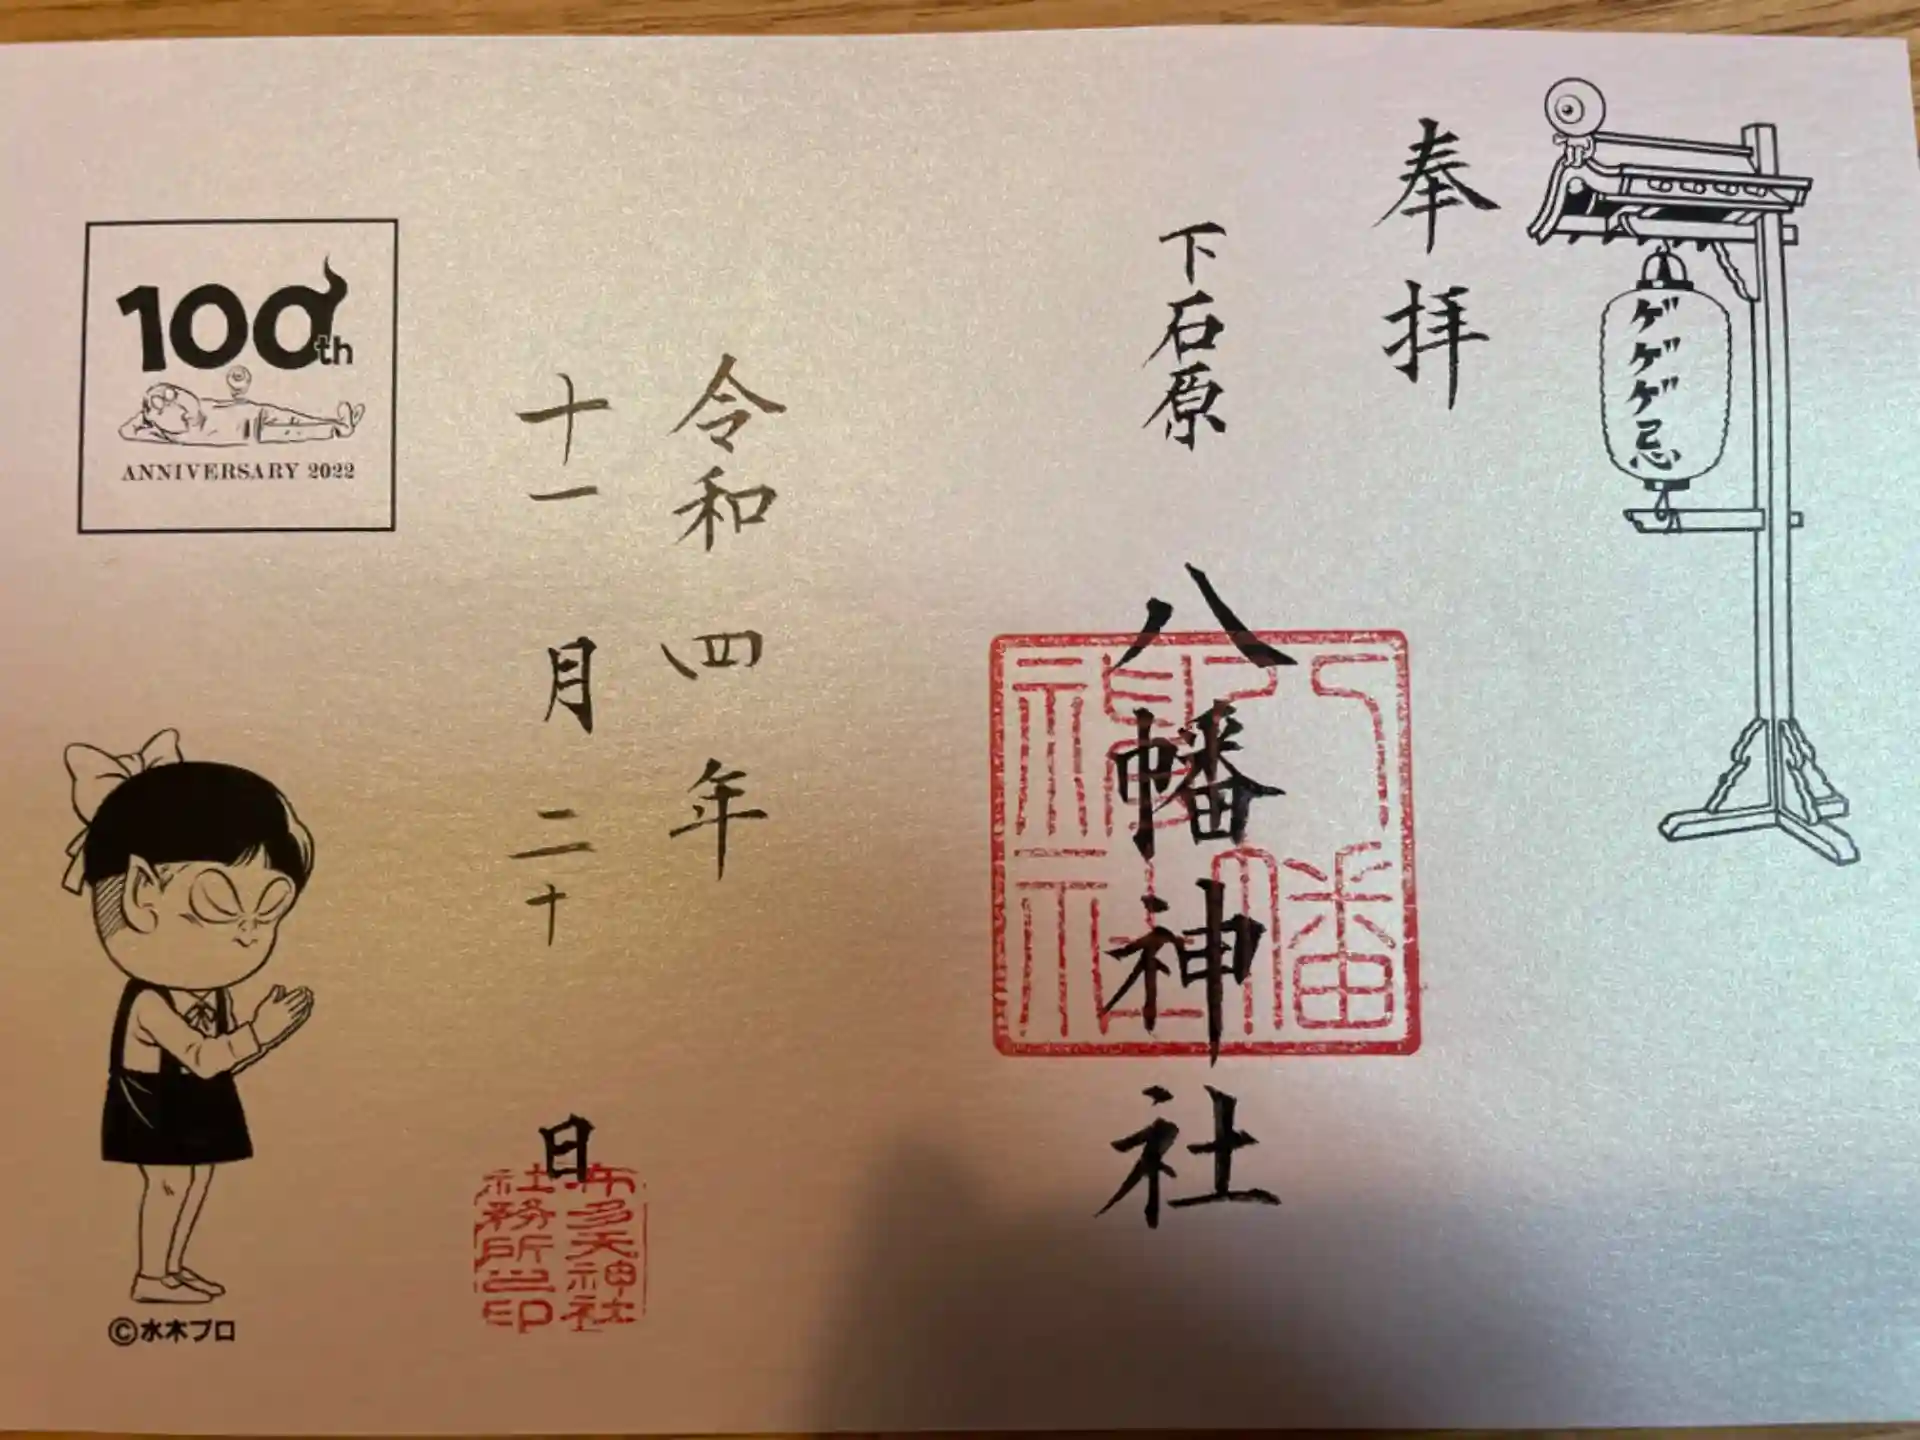 ゲゲゲ忌
奉拝
下石原
八幡神社
八幡神社
令和四年
十一月二十日
布多天神社
社務所之印
100th
ANNIVERSARY 2022
©水木プロ